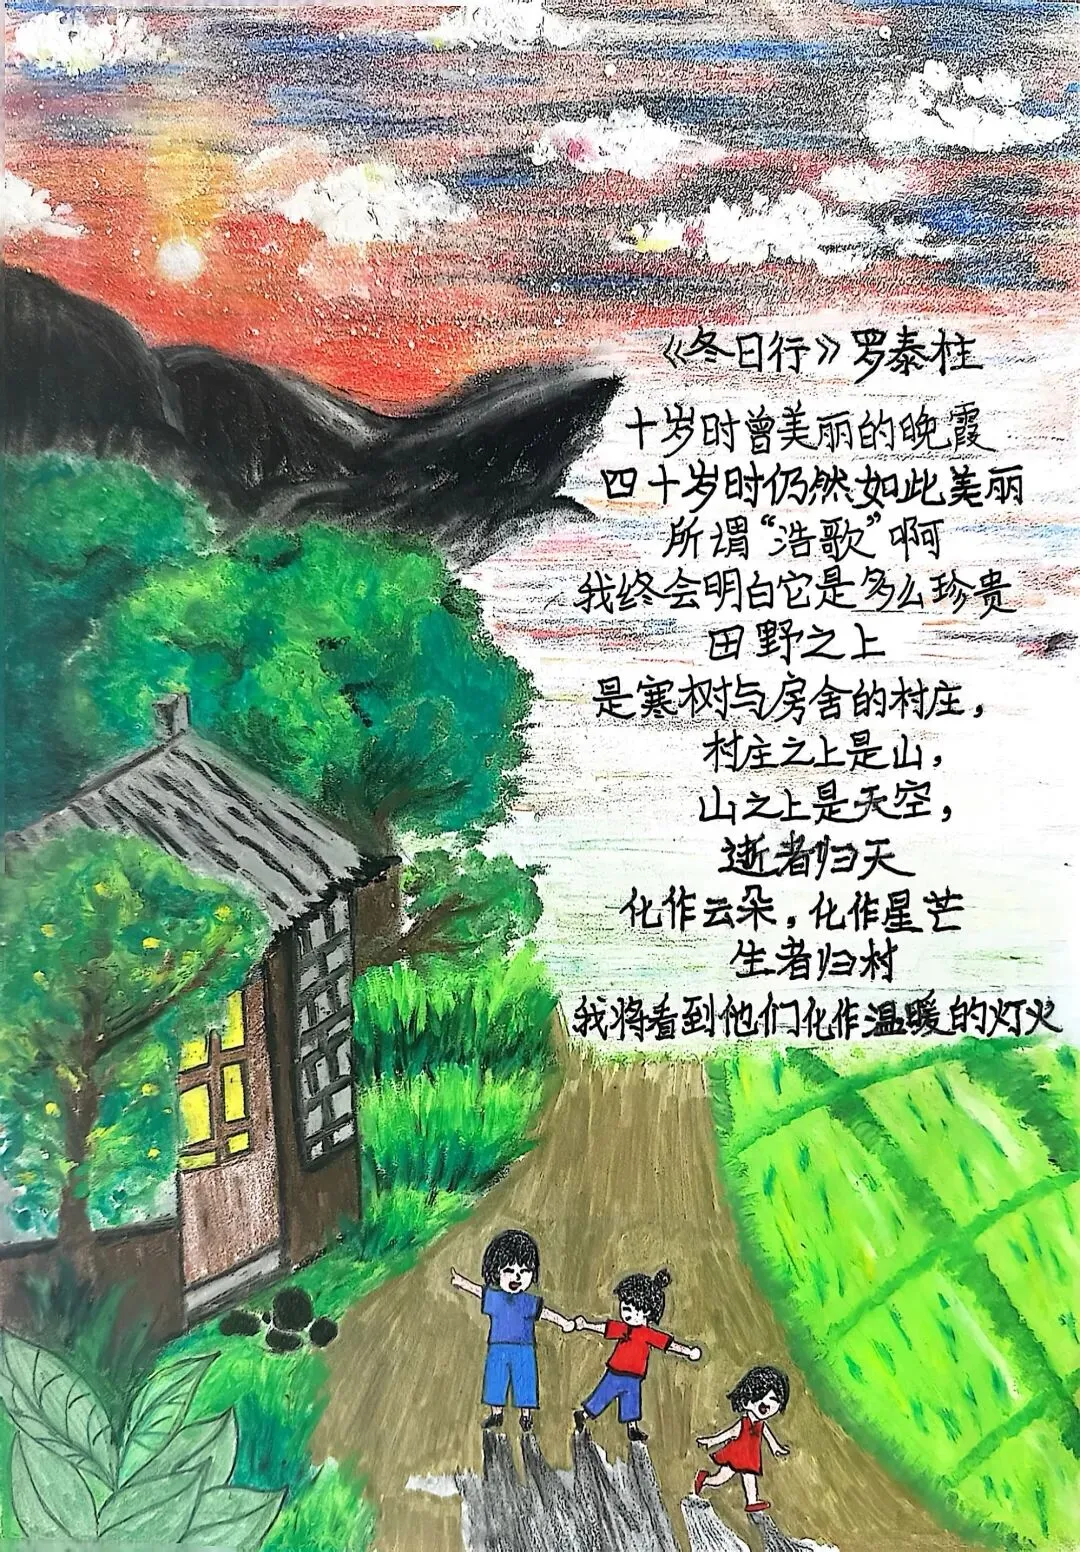 《冬日行》罗泰柱
十岁时曾美丽的晚霞
四十岁时仍然如此美丽
所谓“浩歌”啊
我终会明白它是多么珍贵
田野之上
是寒树与房舍的村庄，
村庄之上是山，
山之上是天空，
逝者归天
化作云朵，化作星芒
生者归村
我将看到他们化作温暖的灯火